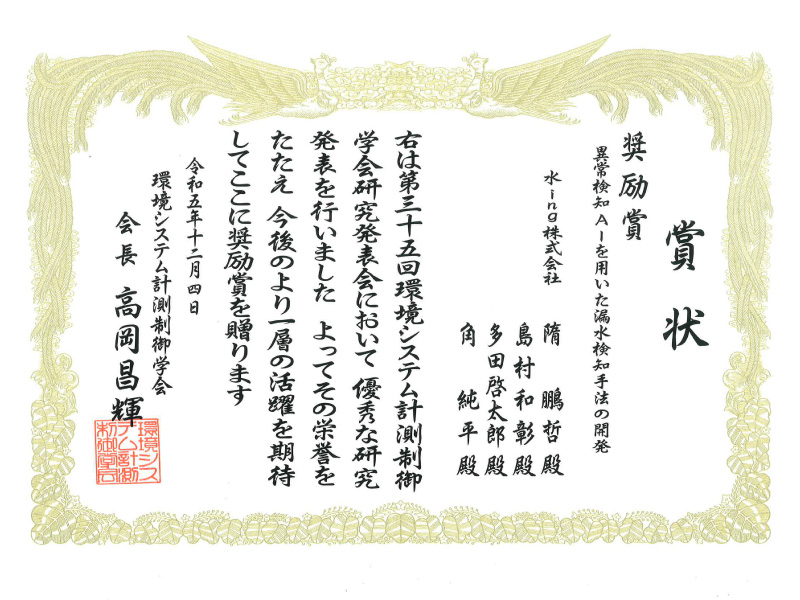 賞状
奨励賞
異常検知AIを用いた漏水検知手法の開発
水ing株式会社
隋 鵬哲殿
島村和彰殿
多田啓太郎殿
角 純平殿
右は第三十五回環境システム計測制御
学会研究発表会において 優秀な研究
発表を行いました よってその栄誉を
たたえ 今後のより一層の活躍を期待
してここに奨励賞を贈ります
令和五年十二月四日
環境システム計測制御学会
会長 高岡昌輝